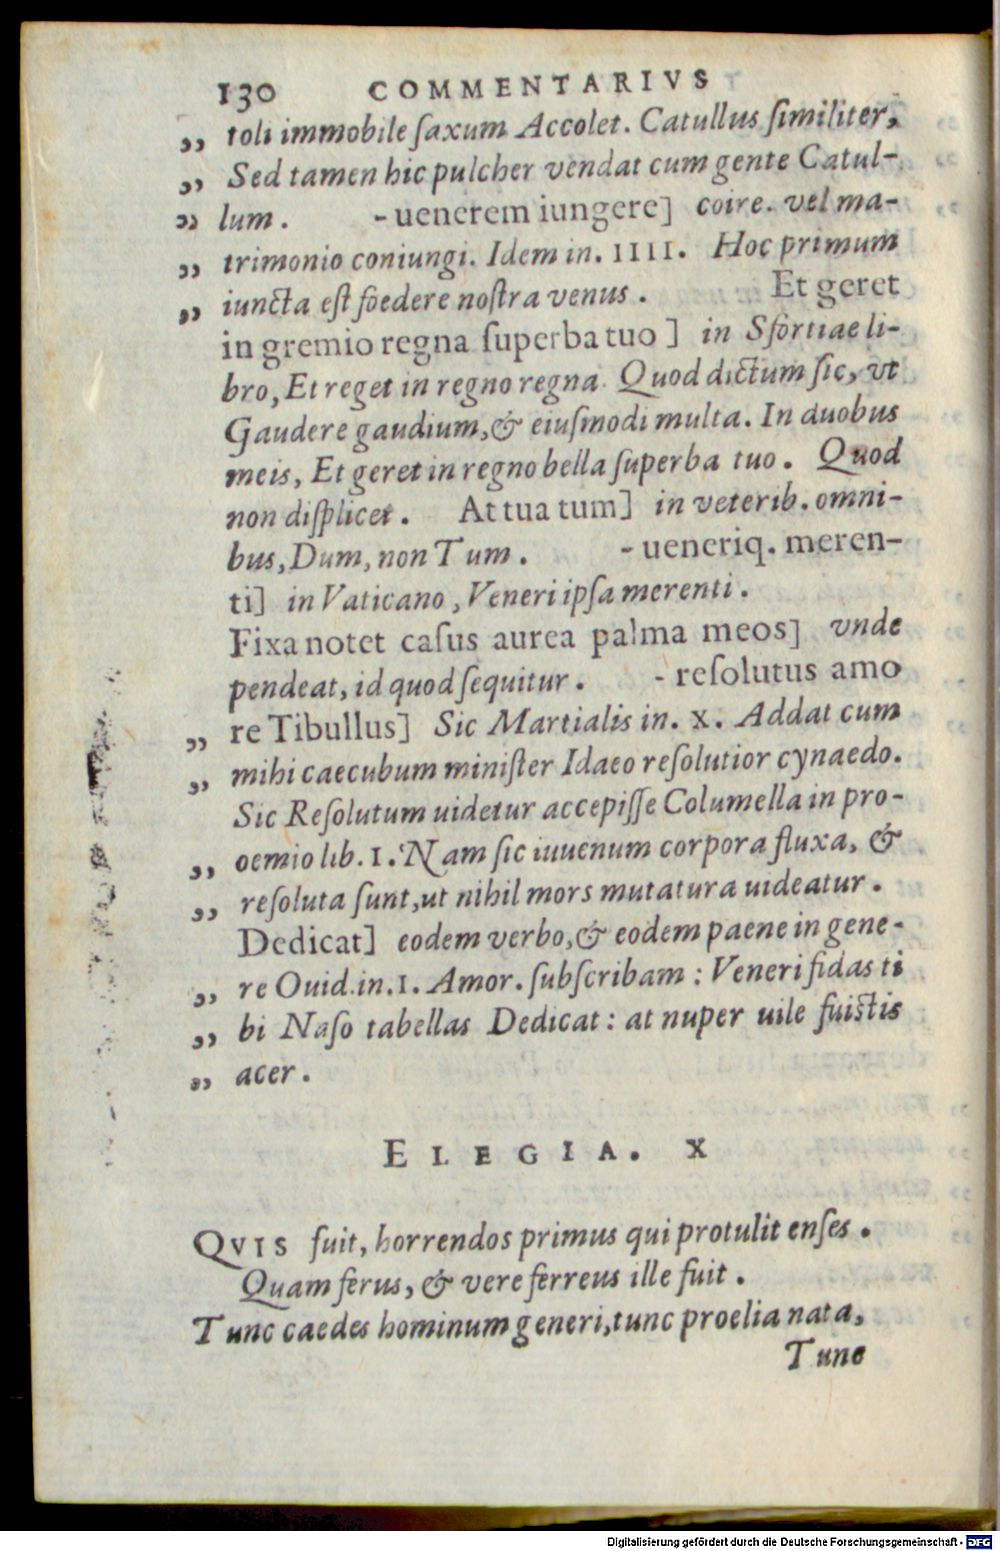 130 COMMENTARIVS
„ toli immobile ſaxum Accolet. Catullus ſimiliter,
„ Sed tamen hic pulcher vendat cum gente Catul-
„ lum. - uenerem iungere] coire. vel ma-
„ trimonio coniungi. Idem in. IIII. Hoc primum
„ iuncta eſt foedere noſtra venus. Et geret
in gremio regna ſuperba tuo] in Sfortiae li-
bro, Et reget in regno regna. Quod dictum ſic, vt
Gaudere gaudium, & eiuſmodi multa. In duobus
meis, Et geret in regno bella ſuperba tuo. Quod
non diſplicet. At tua tum] in veterib. omni-
bus, Dum, non Tum. - ueneriq. meren-
ti] in Vaticano, Veneri ipſa merenti.
Fixa notet caſus aurea palma meos] vnde
pendeat, id quod ſequitur. - reſolutus amo
„ re Tibullus] Sic Martialis in. X. Addat cum
„ mihi caecubum miniſter Idaeo reſolutior cynaedo.
Sic Reſolutum uidetur accepiſſe Columella in pro-
„ oemio lib. I. Nam ſic iuuenum corpora fluxa, &
„ reſoluta ſunt, ut nihil mors mutatura uideatur.
Dedicat] eodem verbo, & eodem paene in gene-
„ re Ouid. in. I. Amor. ſubſcribam: Veneri fidas ti
„ bi Naſo tabellas Dedicat: at nuper uile fuiſtis
„ acer.
ELEGIA. X
QVIS fuit, horrendos primus qui protulit enſes.
Quam ferus, & vere ferreus ille fuit.
Tunc caedes hominum generi, tunc proelia nata,
Tunc
Digitalisierung gefördert durch die Deutsche Forschungsgemeinschaft - DFG